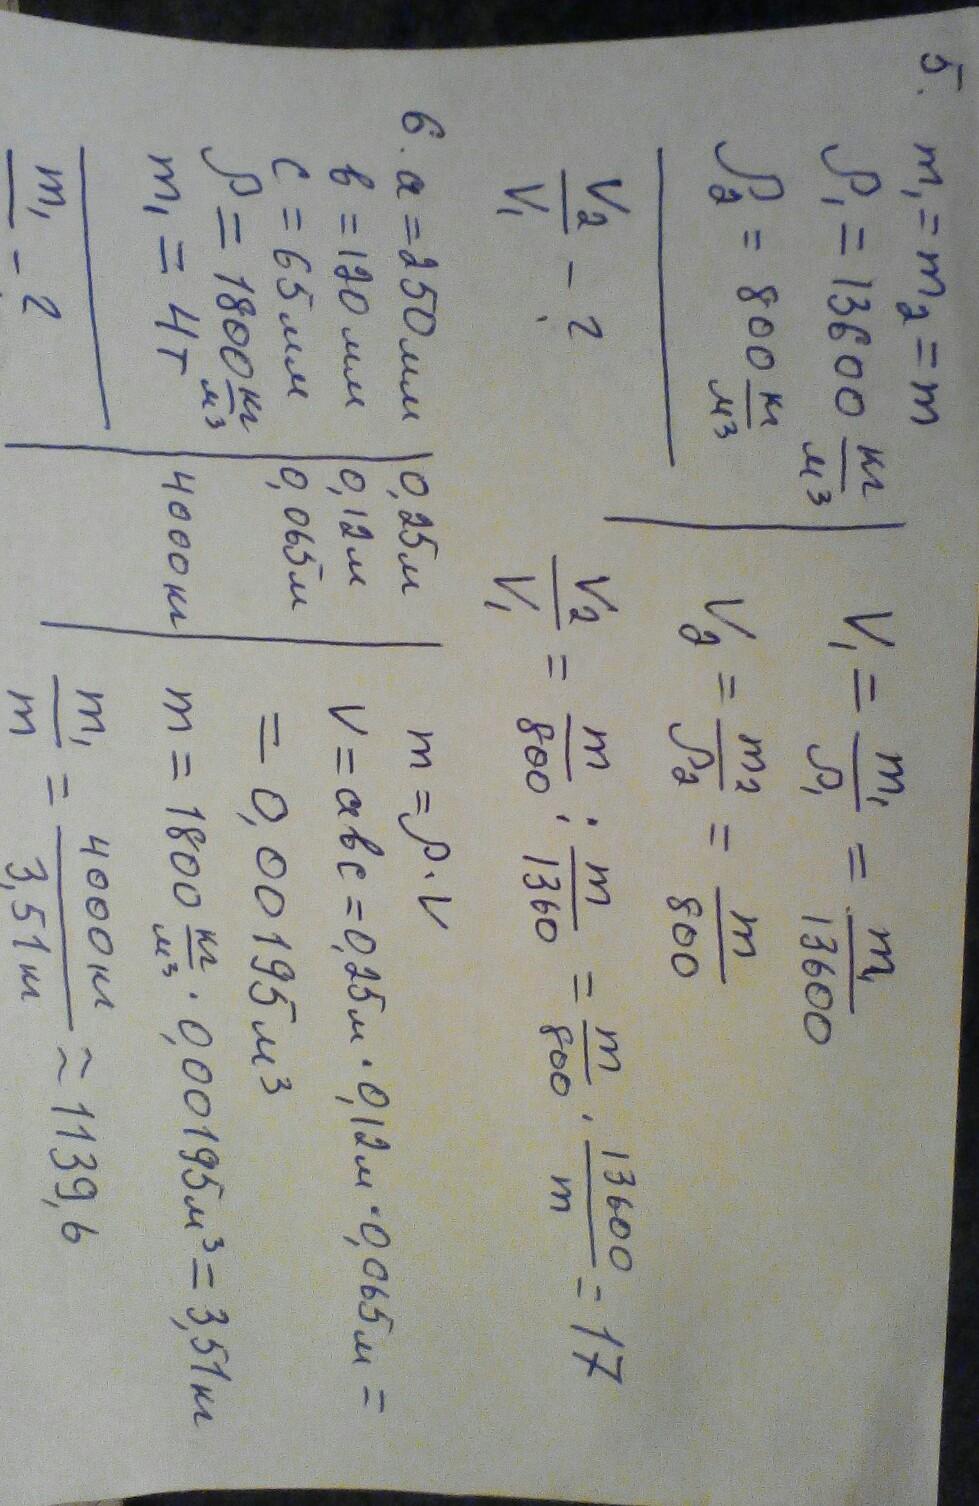 5. m₁ = m₂ = m
ρ₁ = 13600 кг/м³
ρ₂ = 800 кг/м³
V₂/V₁ - ?
V₁ = m₁/ρ₁ = m₁/13600
V₂ = m₂/ρ₂ = m/800
V₂/V₁ = m/800 : m/1360 = m/800 · 13600/m = 17
6. a = 250мм 0,25м
в = 120мм 0,12м
с = 65мм 0,065м
ρ = 1800 кг/м³
m₁ = 4т 4000кг
m₁/ - ?
m = ρ · V
V = авс = 0,25м · 0,12м · 0,065м =
= 0,00195м³
m = 1800 кг/м³ · 0,00195м³ = 3,51кг
m₁/m = 4000кг/3,51кг ≈ 1139,6